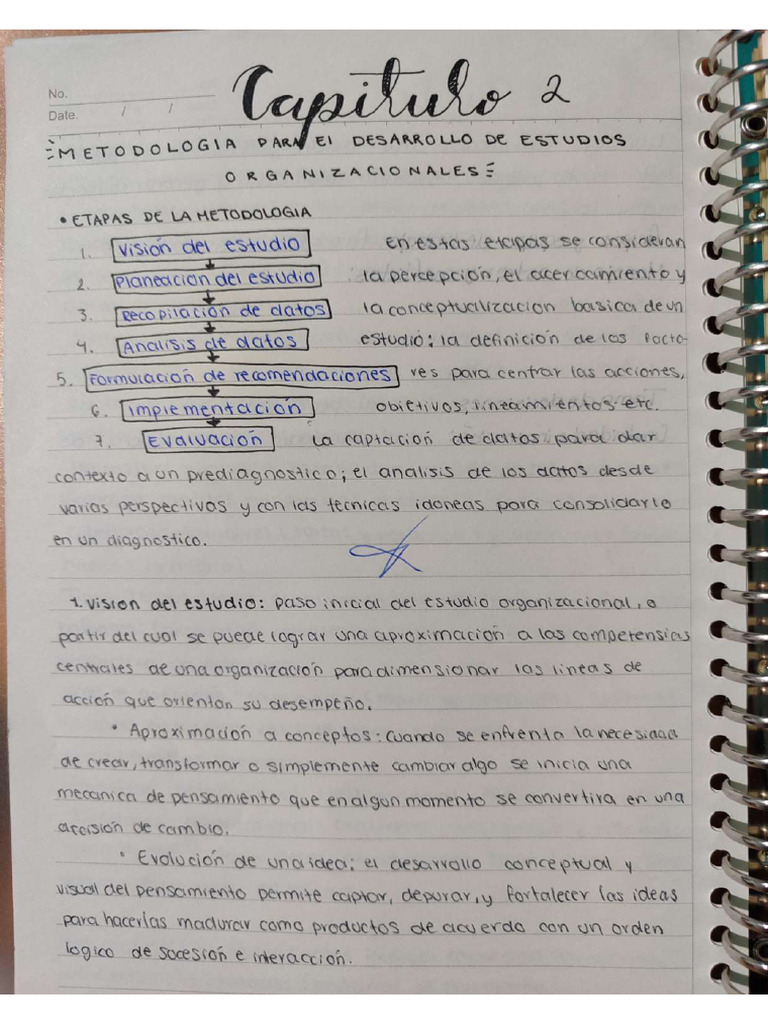 No.
Date. / /
Capitulo 2
METODOLOGIA PARA El DESARROLLO DE ESTUDIOS
ORGANIZACIONALES
• ETAPAS DE LA METODOLOGIA
1. Visión del estudio En estas etapas se consideran
2. Planeación del estudio la percepción, el acercamiento y
3. Recopilación de datos la conceptualización basica de un
4. Analisis de datos estudio; la definición de los facto-
5. Formulación de recomendaciones res para centrar las acciones,
6. Implementación objetivos, lineamientos etc.
7. Evaluación La captación de datos para dar
contexto a un prediagnostico; el analisis de los datos desde
varias perspectivas y con las tecnicas idoneas para consolidarlo
en un diagnostico.
1. Vision del estudio: paso inicial del estudio organizacional, a
partir del cual se puede lograr una aproximación a las competensias
centrales de una organización para dimensionar las lineas de
acción que orientan su desempeño.
• Aproximación a conceptos: cuando se enfrenta la necesidad
de crear, transformar o simplemente cambiar algo se inicia una
mecanica de pensamiento que en algun momento se convertira en una
decisión de cambio.
• Evolución de una idea; el desarrollo conceptual y
visual del pensamiento permite captar, depurar, y fortalecer las ideas
para hacerlas madurar como productos de acuerdo con un orden
logico de socesión e interacción.